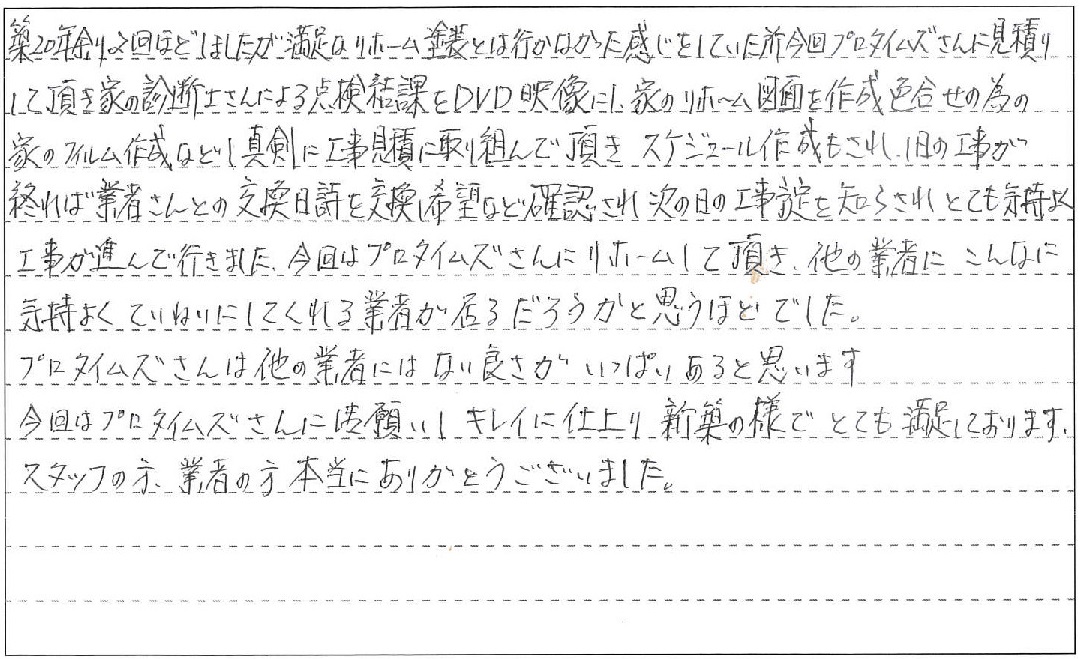 築20年余り2回ほどしましたが満足なリホーム塗装とは行かなかった感じをしていた所今回プロタイムズさんに見積り
して頂き家の診断士さんによる点検結課をDVD映像にし、家のリホーム図面を作成色合せの為の
家のフィルム作成などし真剣に工事見積に取り組んで頂き スケジュール作成もされ、1日の工事が
終れば業者さんとの交換日誌を交換し希望など確認され次の日の工事予定を知らされとても気持よく
工事が進んで行きました、今回はプロタイムズさんにリホームして頂き、他の業者に こんなに
気持よくていねいにしてくれる業者が居るだろうかと思うほどでした。
プロタイムズさんは他の業者にはない良さがいっぱいあると思います
今回はプロタイムズさんにお願いし キレイに仕上り 新築の様で とても満足しております、
スタッフの方、業者の方 本当にありがとうございました。